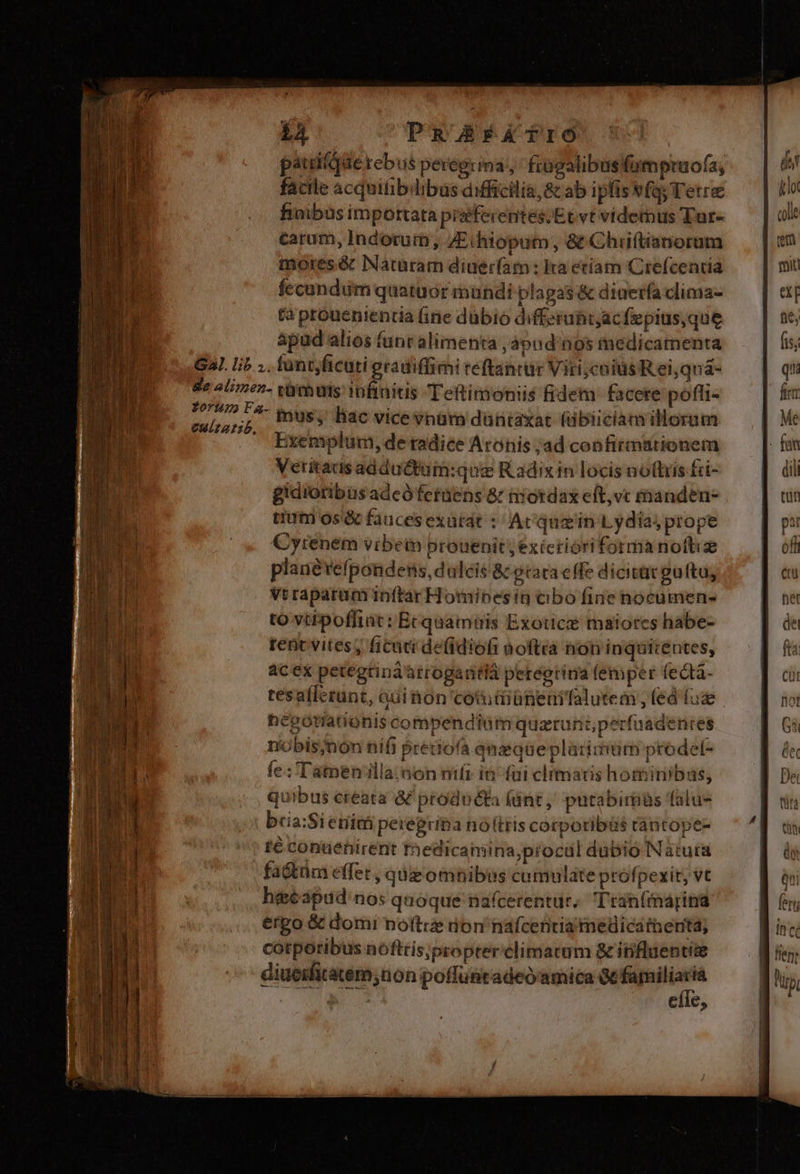 12 PRÆFATIO
paucisque rebus peregrina, frugalibus sumptuosa,
facile acquisibilibus difficilia, & ab ipsis vsq; Terræ
finibus importata præferentes. Et vt videmus Tur-
carum, Indorum, Æthiopum, & Christianorum
mores & Naturam diuersam: Ita etiam Crescentia
secundum quatuor mundi plagas & diuersa clima-
ta prouenientia sine dubio differunt, ac sæpius, quę
apud alios sunt alimenta, apud nos medicamenta
sunt, sicuti grauissimi testantur Viri, cuius Rei, quā-
Gal. lib 2.
de alimen-
torum Fa-
cultatib.
tūmuis infinitis Testimoniis fidem facere possi-
mus, hac vice vnum duntaxat subiiciam illorum
Exemplum, de radice Aronis, ad confirmationem
Veritatis adductum: quæ Radix in locis nostris fri-
gidioribus adeò feruens & mordax est, vt manden-
tium os & fauces exurat: At quæ in Lydia, prope
Cyrenem vrbem prouenit, exteriori forma nostræ
planè respondens, dulcis & grata esse dicitur gustu,
vt raparum instar Homines in cibo sine nocumen-
to vti possint: Et quamuis Exoticæ maiores habe-
rent vires, sicuti desidiosi nostra non inquirentes,
ac ex peregrinâ arrogantiâ peregrina semper sectā-
tes asserunt, qui non com̄unem salutem, sed suæ
negotiationis compendium quærunt, persuadentes
nobis, non nisi pretiosa quæque plurimùm prodes-
se: Tamen illa, non nisi in sui climatis hominibus,
quibus creata & producta sunt, putabimus salu-
bria: Si enim peregrina nostris corporibus tantope-
re conuenirent medicamina, procul dubio Natura
factum esset, quæ omnibus cumulate prospexit, vt
hæc apud nos quoque nascerentur. Transmarina
ergo & domi nostræ non nascentia medicamenta,
corporibus nostris, propter climatum & influentiæ
diuersitatem, non possunt adeò amica & familiaria
esse,